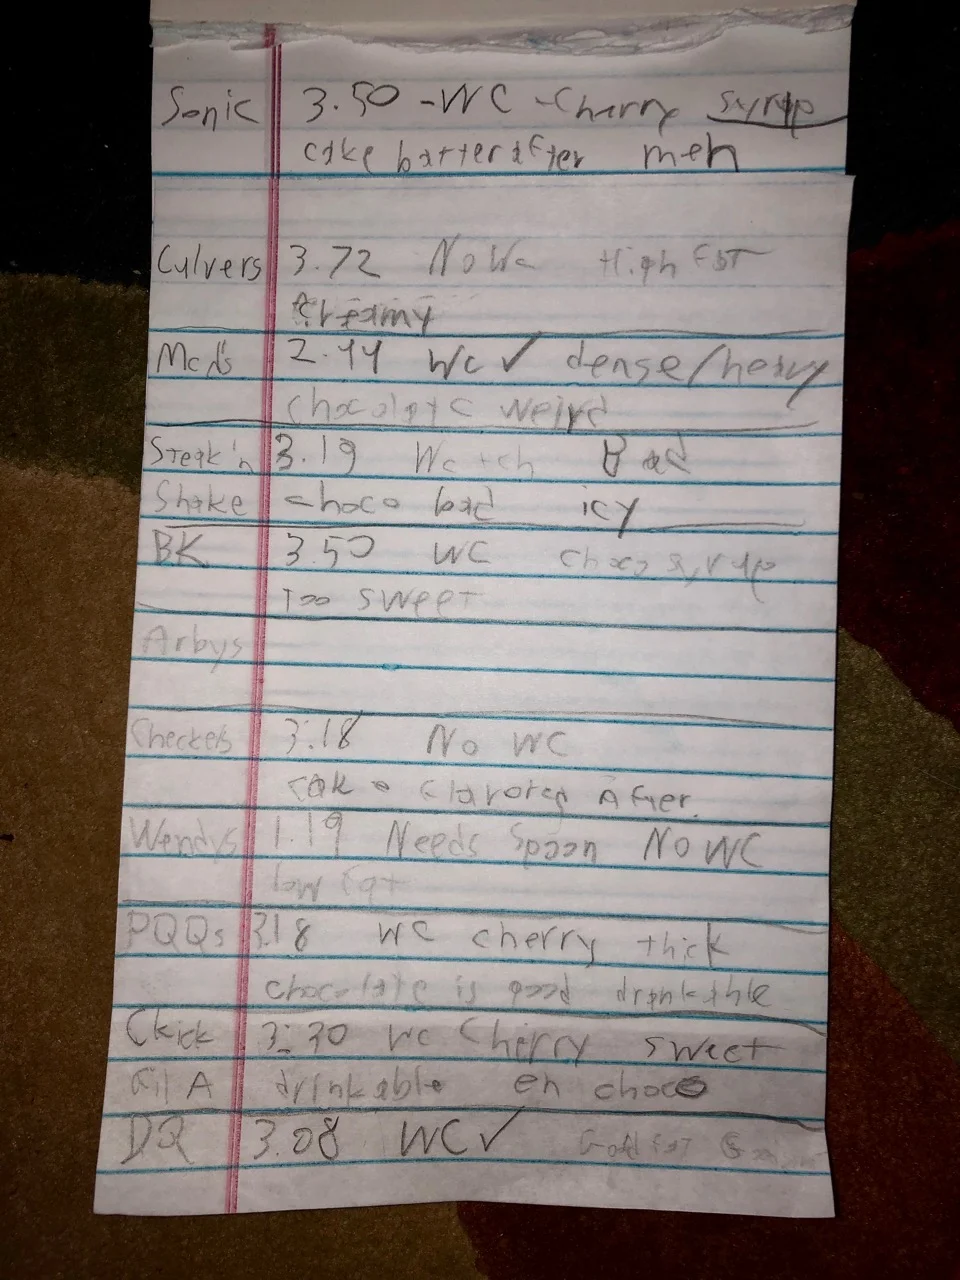 Sonic 3.50 -WC -Cherry syrup
cake batter after meh
Culvers 3.72 No Wc High Fat
creamy
Mcds 2.44 Wc✓ dense/heavy
chocolate weird
Steak'n 3.19 Wc +ch Bad
Shake choco bad icy
BK 3.50 WC choco syrup
Too sweet
Arbys
Checkers 3.18 No WC
Flavored After.
Wendys 1.19 Needs Spoon No WC
low Fat
PQQs 3.18 WC cherry thick
chocolate is good drinkable
Ckick 3.30 Wc Cherry sweet
Fil A drinkable eh choco
DQ 3.08 WC✓